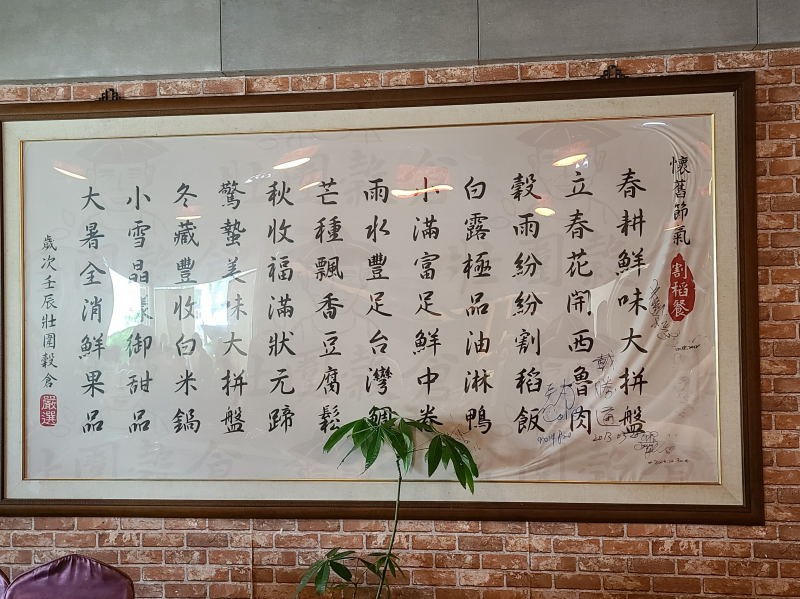 懷舊節氣
割稻餐
春耕鮮味大拼盤
立春花開西魯肉
穀雨紛紛割稻飯
白露極品油淋鴨
小滿富足鮮中卷
雨水豐足台灣鯛
芒種飄香豆腐鬆
秋收福滿狀元蹄
驚蟄美味大拼盤
冬藏豐收白米鍋
小雪晶漾御甜品
大暑全消鮮果品
歲次壬辰壯圍穀倉
嚴選